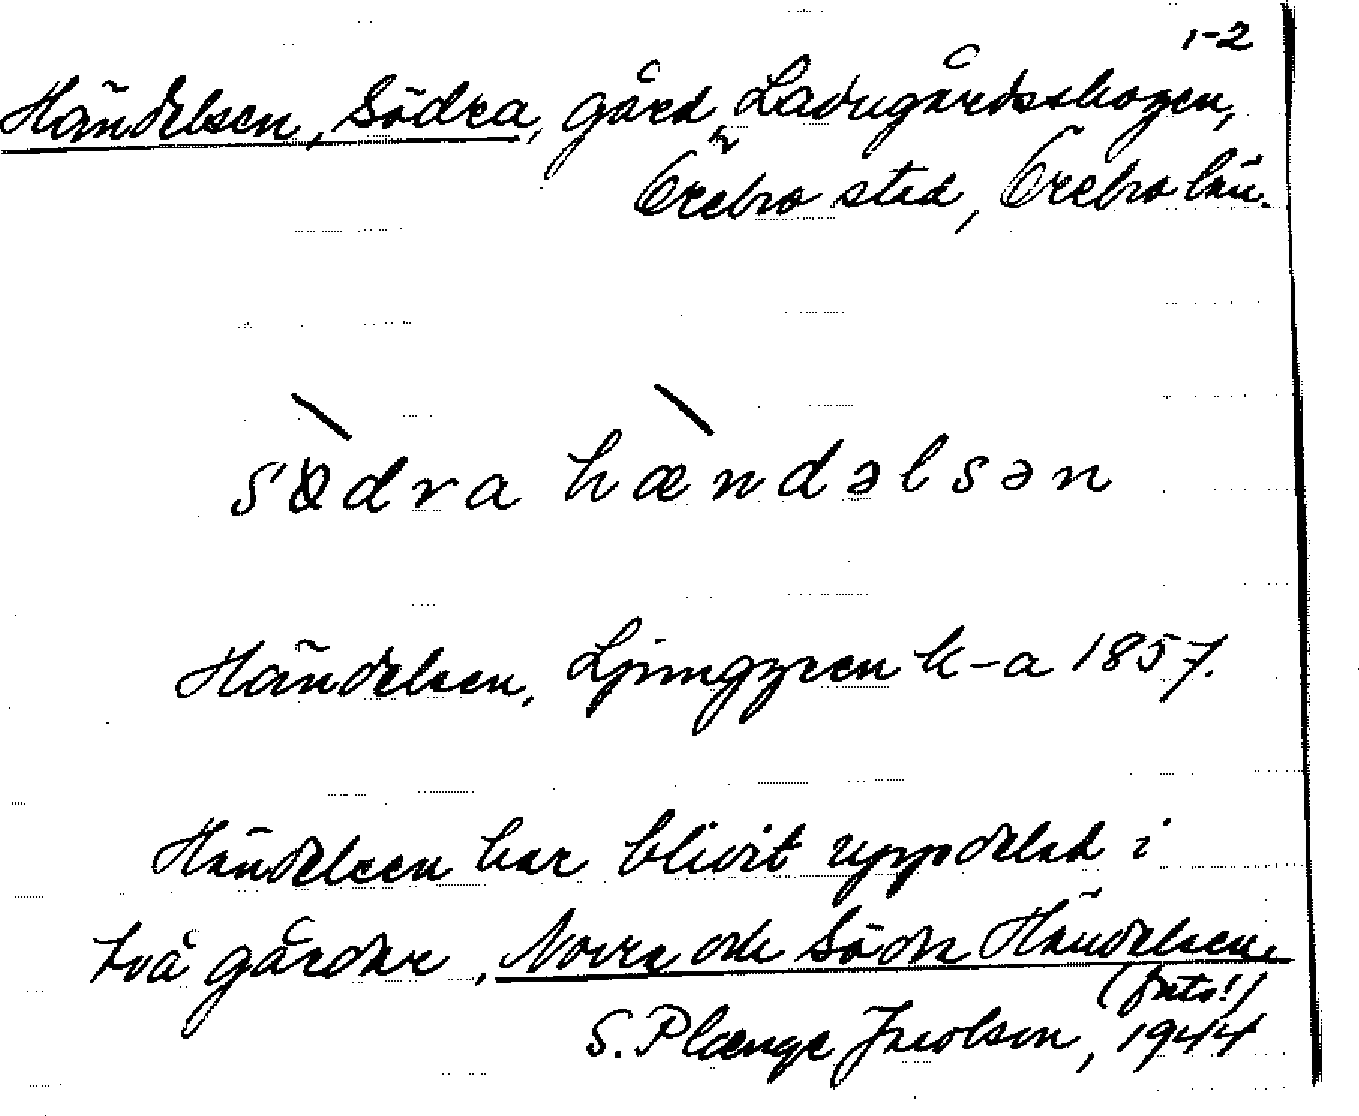 1-2
Händelsen, Södra, gård, Ladugårdsskogen,
Örebro stad, Örebro län.
södra hændəlsən
Händelsen, Ljunggren k-a 1857.
Händelsen har blivit uppdelad i
två gårdar, Norra och Södra Händelsen.
(foto!)
S. Plænge Jacobson, 1944